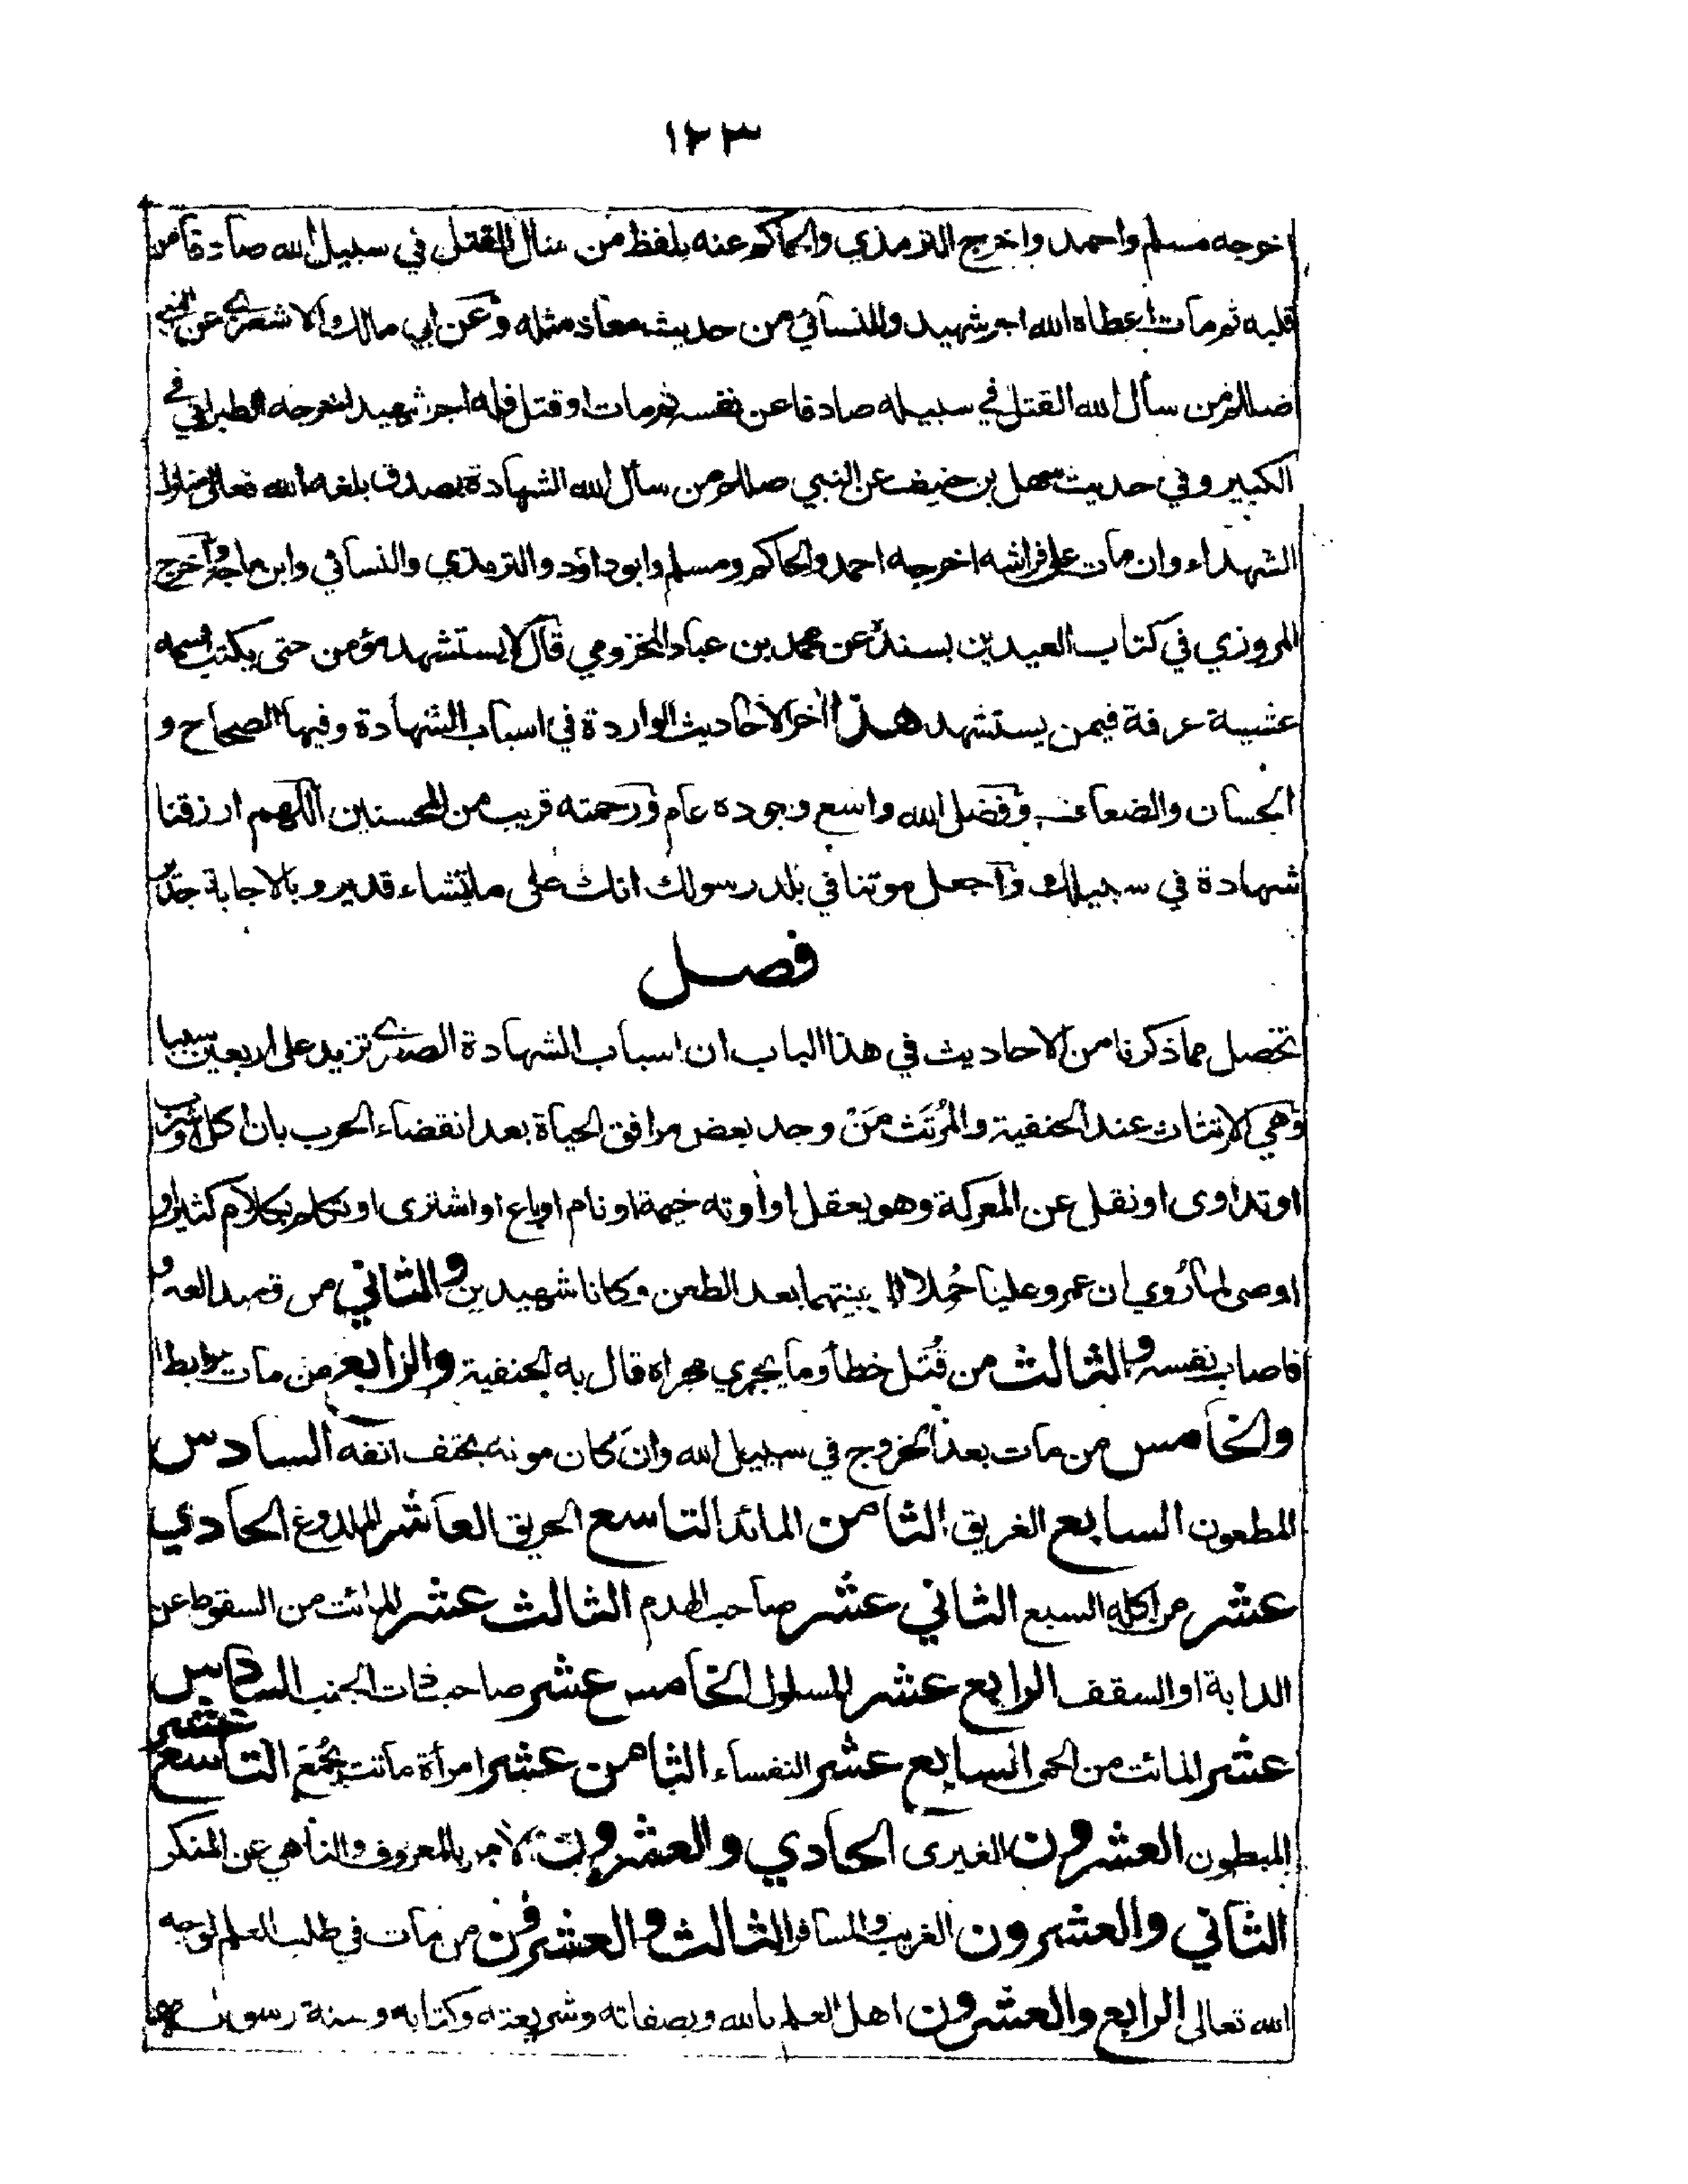 ١٢٣
اخرجه مسلم واحمد واخرج الترمذي والحاكم عنه بلفظ من سأل القتل في سبيل الله صادقا من
قلبه ثم مات اعطاه الله اجر شهيد وللنسائي من حديث معاذ مثله وعن ابي مالك الاشعري عن النبي
صللم من سأل الله القتل في سبيله صادقا عن نفسه ثم مات او قتل فله اجر شهيد اخرجه الطبراني في
الكبير وفي حديث سهل بن حنيف عن النبي صللم من سأل الله الشهادة بصدق بلغه الله تعالى منازل
الشهداء وان مات على فراشه اخرجه احمد والحاكم ومسلم وابو داؤد والترمذي والنسائي وابن ماجة واخرج
المروزي في كتاب العيدين بسنده عن محمد بن عباد المخزومي قال لا يستشهد مؤمن حتى يكتب اسمه
عشية عرفة فيمن يستشهد هذا اخر الاحاديث الواردة في اسباب الشهادة وفيها الصحاح و
الحسان والضعاف وفضل الله واسع وجوده عام ورحمته قريب من المحسنين اللهم ارزقنا
شهادة في سبيلك واجعل موتنا في بلد رسولك انك على ما تشاء قدير وبالاجابة جدير
فصل
تحصل مما ذكرنا من الاحاديث في هذا الباب ان اسباب الشهادة الصغرى تزيد على اربعين سببا
وهي الارتثاث عند الحنفية والمُرتَث مَنْ وجد بعض مرافق الحياة بعد انقضاء الحرب بان اكل او شرب
او تداوى او نقل عن المعركة وهو يعقل او أوته خيمة او نام او باع او اشترى او تكلم بكلام كثير او
اوصى لما رُوي ان عمر وعليا حُملا الى بيتهما بعد الطعن وكانا شهيدين والثاني من قصد العدو
فاصاب نفسه والثالث من قُتل خطأ وما يجري مجراه قال به الحنفية والرابع من مات مرابطا
والخامس من مات بعد الخروج في سبيل الله وان كان موته بحتف انفه السادس
المطعون السابع الغريق الثامن المائد التاسع الحريق العاشر الملدوغ الحادي
عشر من اكله السبع الثاني عشر صاحب الهدم الثالث عشر المائت من السقوط عن
الدابة او السقف الرابع عشر المسلول الخامس عشر صاحب ذات الجنب السادس
عشر المائت من الحمى السابع عشر النفساء الثامن عشر امرأة ماتت بجُمْع التاسع عشر
المبطون العشرون الغيرى الحادي والعشرون الامر بالمعروف والناهي عن المنكر
الثاني والعشرون الغريب والمسافر الثالث والعشرون من مات في طلب العلم لوجه
الله تعالى الرابع والعشرون اهل العلم بالله وبصفاته وشريعته وكتابه وسنة رسوله